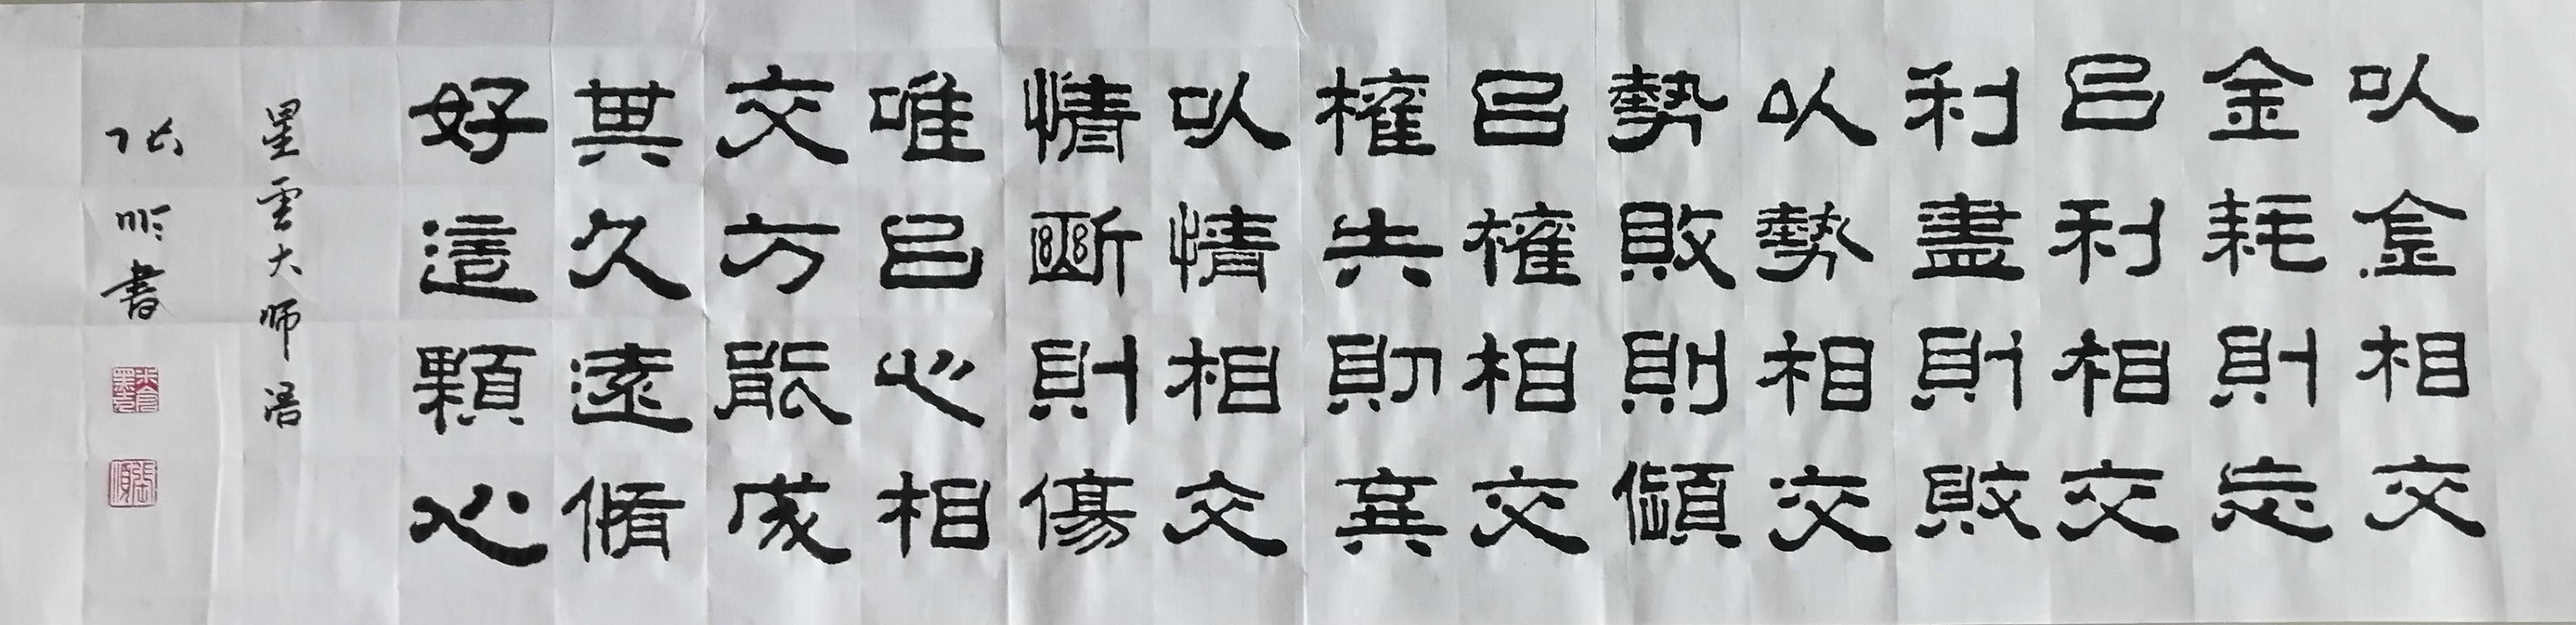 以金相交
金耗則忘
以利相交
利盡則敗
以勢相交
勢敗則傾
以權相交
權失則棄
以情相交
情斷則傷
唯以心相
交方能成
其久遠脩
好這顆心
星雲大師語
张顺書
張順